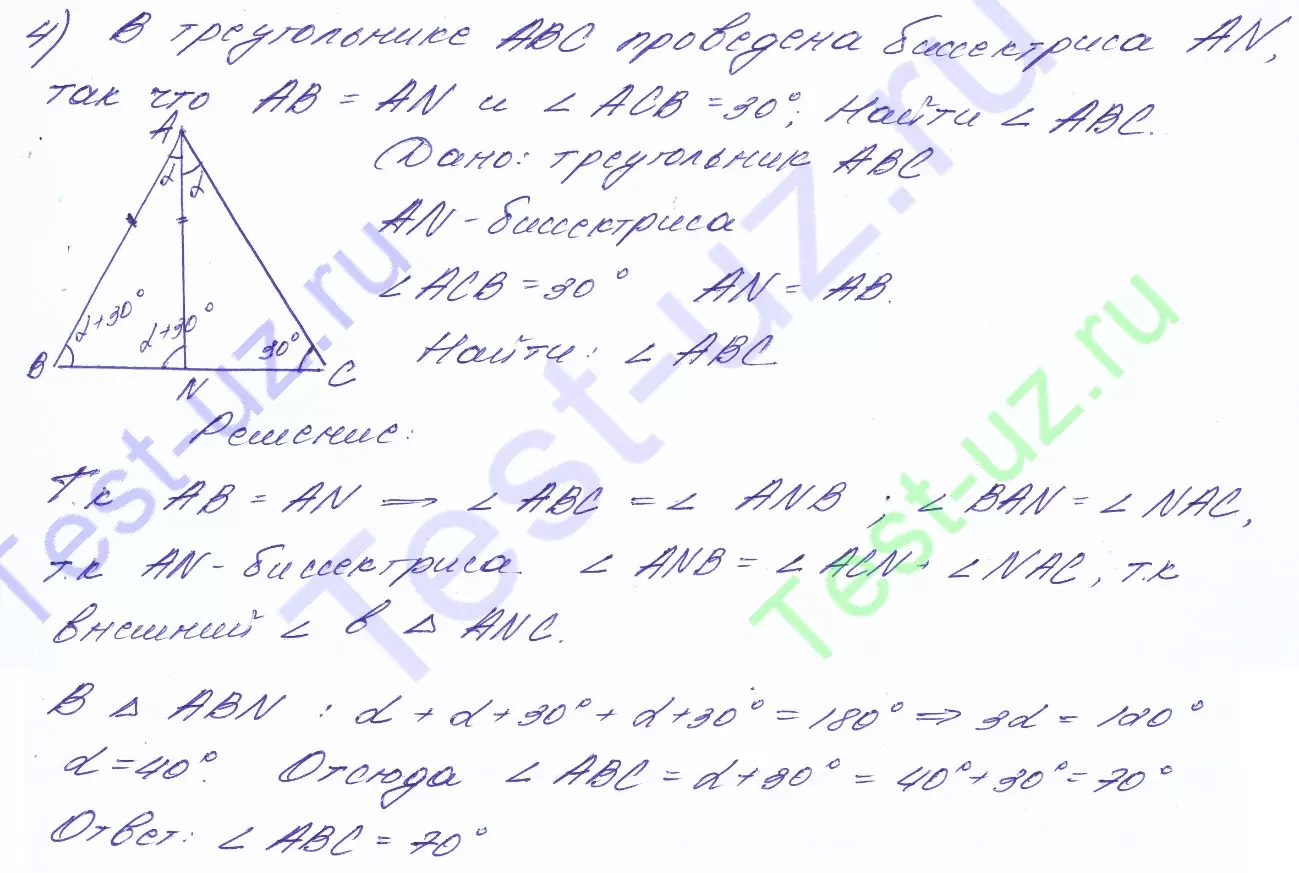 4) В треугольнике ABC проведена биссектриса AN,
так что AB = AN и ∠ ACB = 30°; Найти ∠ ABC.
A
α α
α+30° α+30° 30°
B N C
Дано: треугольник ABC
AN - биссектриса
∠ ACB = 30° AN = AB.
Найти: ∠ ABC
Решение:
Т.к AB = AN => ∠ ABC = ∠ ANB ; ∠ BAN = ∠ NAC,
т.к AN - биссектриса. ∠ ANB = ∠ ACN + ∠ NAC, т.к
внешний ∠ в △ ANC.
В △ ABN : α + α+30° + α+30° = 180° => 3α = 120°
α = 40°. Отсюда ∠ ABC = α+30° = 40°+30° = 70°
Ответ: ∠ ABC = 70°
Test-uz.ru
Test-uz.ru
Test-uz.ru